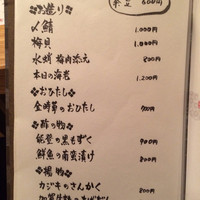 600円
❖お造り❖
〆鯖 1.000円
梅貝 1.000円
水蛸 梅肉添え 800円
本日の海老 1.200円
❖おひたし❖
金時草のおひたし 700円
❖酢の物❖
能登の黒もずく 900円
鮮魚の南蛮漬け 800円
❖揚物❖
カジキのさんかく 800円